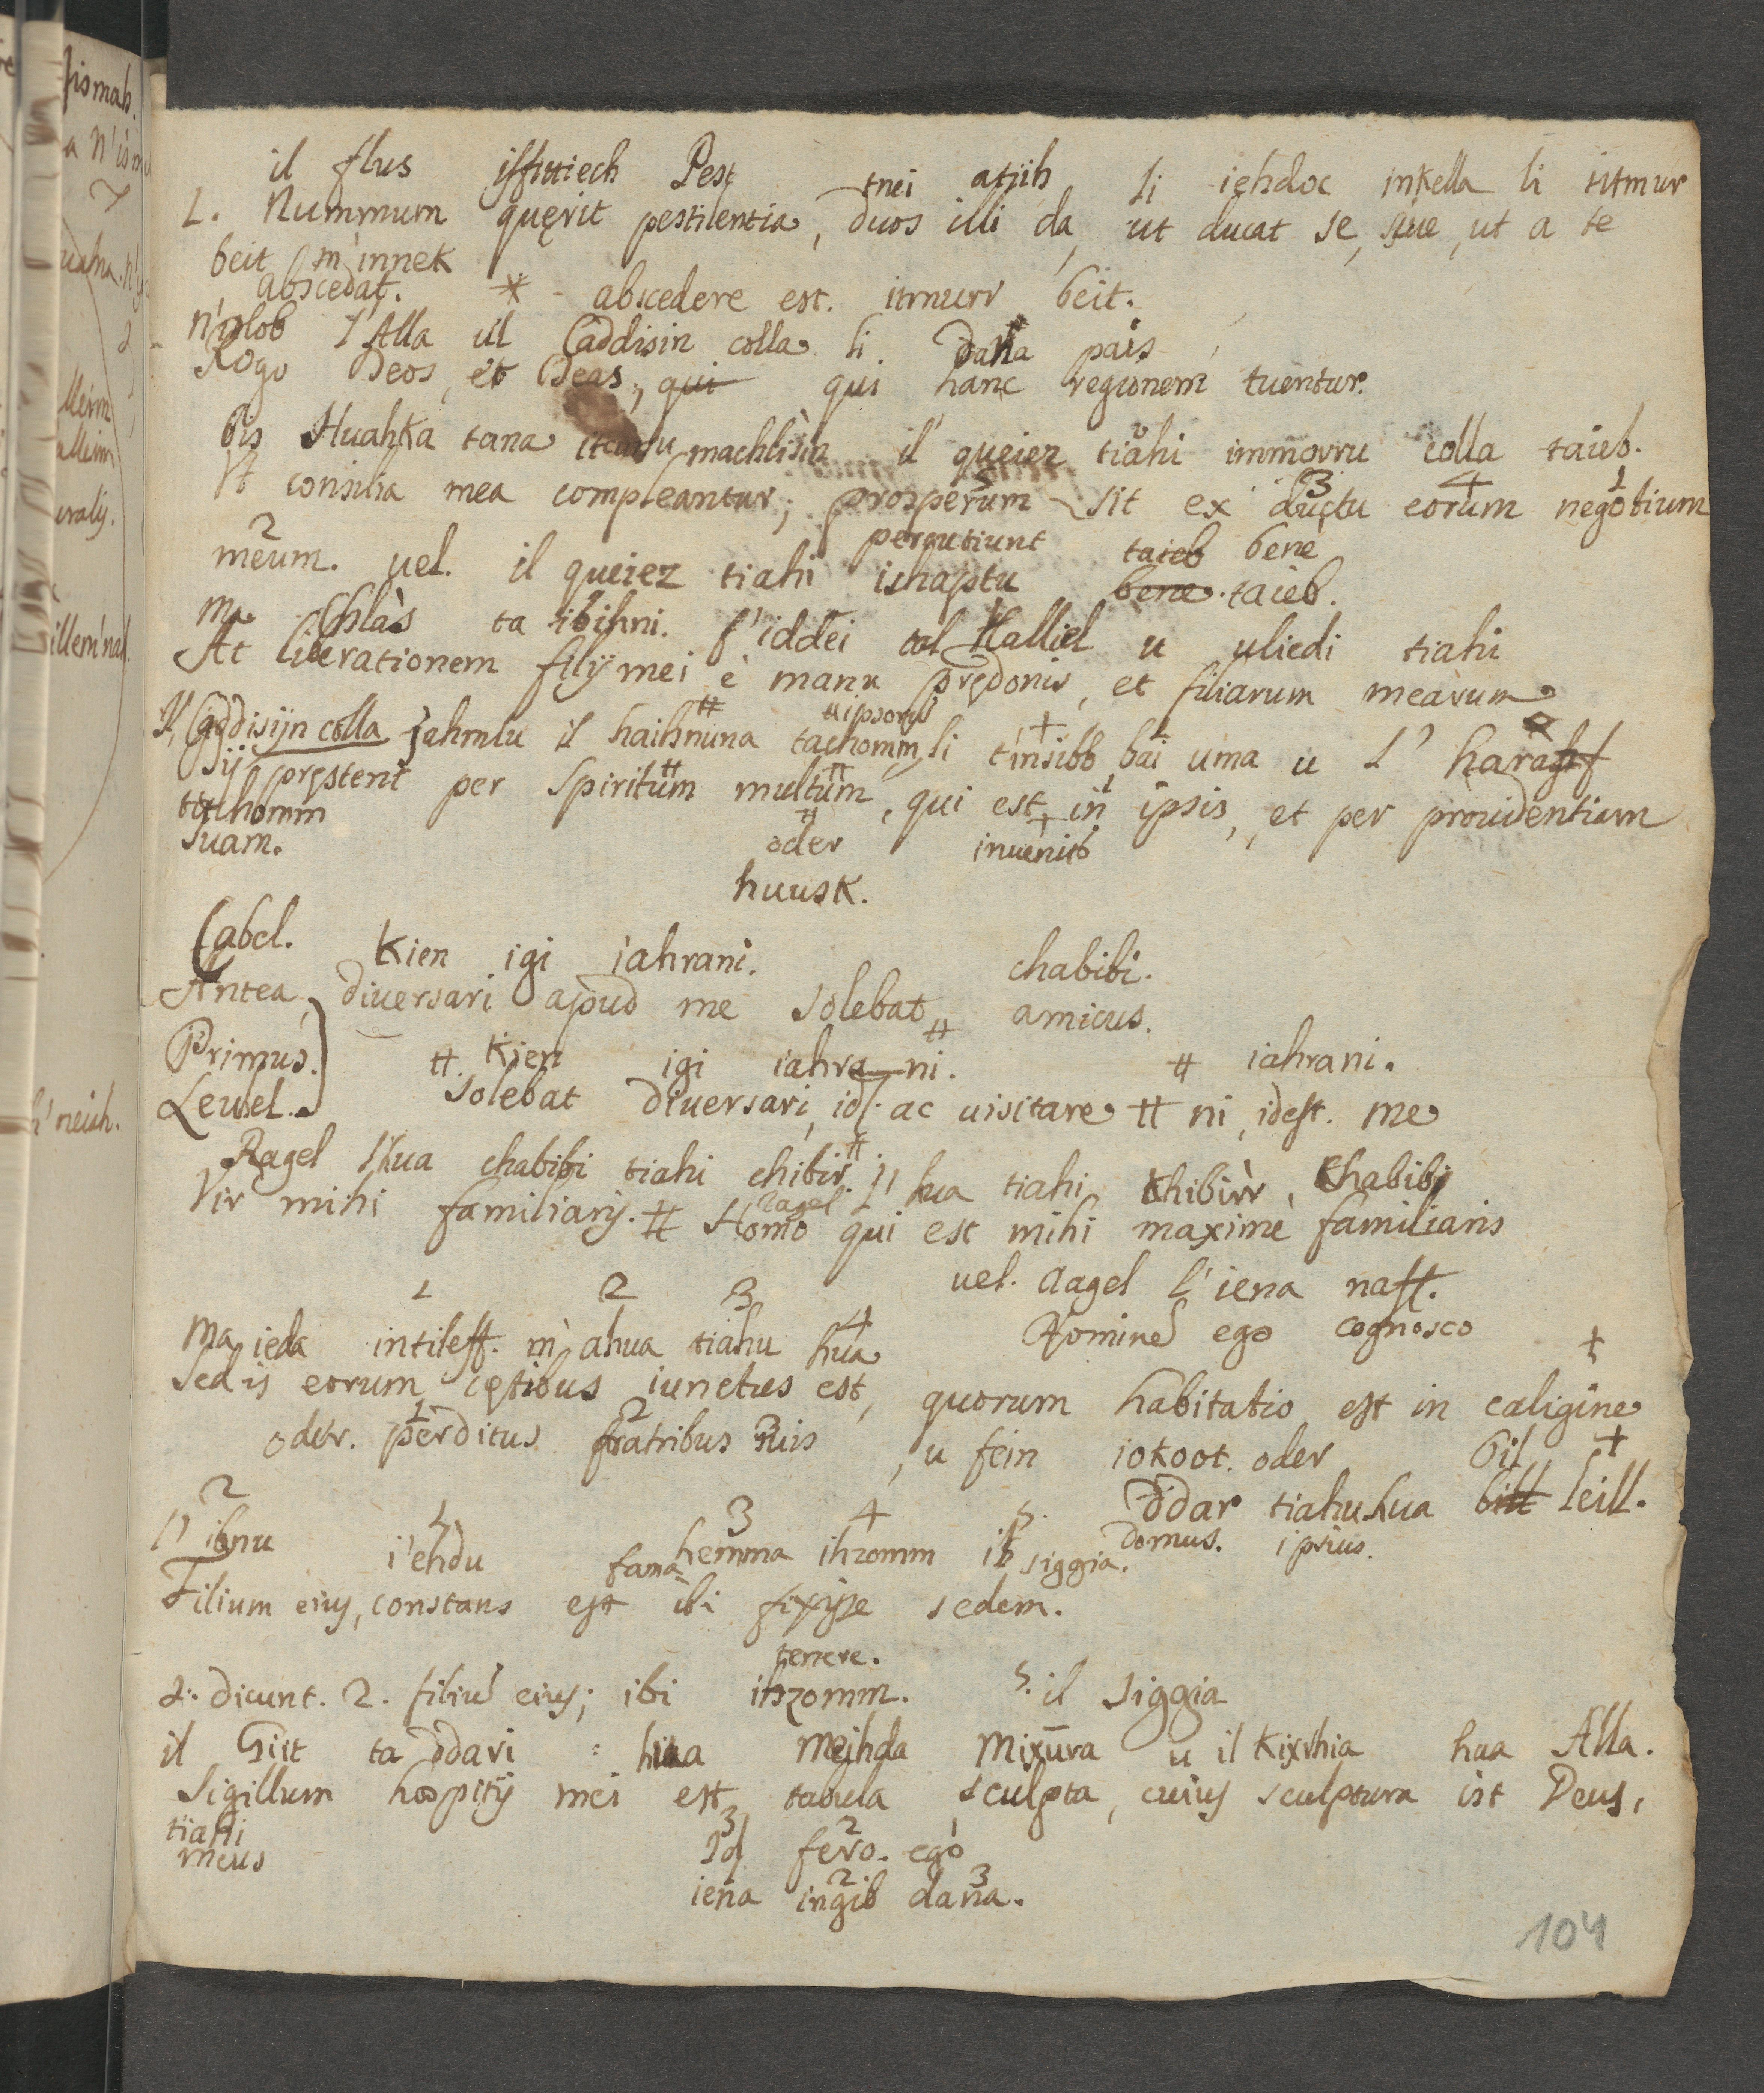 il flus isfittiech Pest tnei atijh li iehdoc mkella li titmur
1. Nummum quęrit pestilentia, duos illi da, ut ducat se, ut a te
beit m'innek
abscedat. * - abscedere est. itmurr beit.
n'itlob l'Alla ul Caddisin colla li. Dana pais
Rogo Deos, et Deas, qui qui hanc regionem tuentur.
Bis Huahka tana machlisin il queiez tiahi immorru colla taieb.
Vt consilia mea compleantur; prosperum sit ex ductu eorum negotium
5 3 4 1
2
meum. uel. il queiez tiahi ichaptu bene taieb.
percutiunt taieb bene
Ma Chlàs ta ibihni. f'iddei tal Halliel u uliedi tiahi
At liberationem filij mei è manu prędonis, et filiarum mearum
Il Caddisijn colla jahmlu il haihnuna tachomm, li t'insibb, bai uma u l' harahf
ipsorum
Sij pręstent per Spiritum multum, qui est in ipsis, et per prouidentiam
tachomm
suam. oder inuenit
huusk.
Cabel. Kien igi iahrani. chabibi.
Antea, diuersari apud me solebat amicus.
Primus. # Kien igi iahra-ni. # iahrani.
Leusel. solebat diuersari, id. ac uisitare # ni, idest. me
Ragel Hua chabibi tiahi chibir # l' hua tiahi chibirr, chabibi
Vir mihi familiaris. # Homo qui est mihi maximè familiaris
ragel
uel. Ragel l'iena naff.
1 2 3 4
Ma ieda intileff. m' ahua tiahu hua Hominem ego cognosco
Sed is eorum cętibus iunctus est, quorum habitatio est in caligine
oder. perditus fratribus suis, u fein iokoot. oder Bil
1 2 3
Ddar tiahu hua bill leill.
2 1 3 4 5
l' ibnu i'ehdu fana hemma ihzomm il siggia. Domus. ipsius.
Filium eius, constans est ibi fixisse sedem.
tenere.
1. dicunt. 2. filium eius; ibi ihzomm. 5. il siggia
il Giit ta Ddari : hua mejhda mixura u il Kixrhia hua Alla.
Sigillum hospitij mei est tabula sculpta, cuius sculptura ist Deus,
tiahi
meus
3 2 1
Id fero. ego
iena ingib dana.
2 3
104